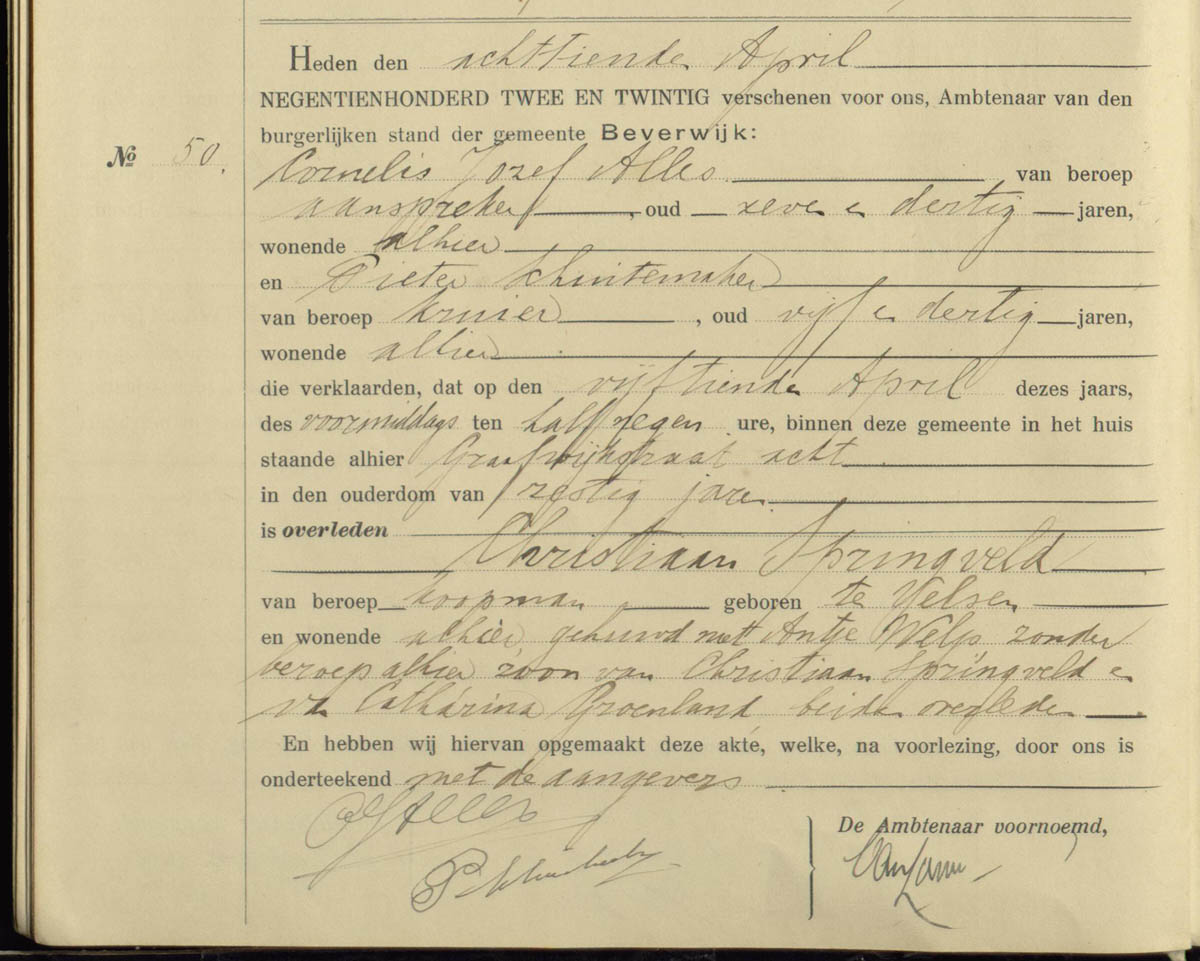 Heden den achttiende April
NEGENTIENHONDERD TWEE EN TWINTIG verschenen voor ons, Ambtenaar van den
burgerlijken stand der gemeente Beverwijk:
№ 50.
Cornelis Jozef Alles van beroep
aanspreker, oud zeven en dertig jaren,
wonende alhier
en Pieter Schuitemaker
van beroep kruier, oud vijf en dertig jaren,
wonende alhier
die verklaarden, dat op den vijftiende April dezes jaars,
des voormiddags ten half negen ure, binnen deze gemeente in het huis
staande alhier Graafwijkstraat acht
in den ouderdom van zestig jaren
is overleden
Christiaan Springveld
van beroep koopman geboren te Velsen
en wonende alhier, gehuwd met Antje Welp zonder
beroep alhier zoon van Christiaan Springveld en
van Catharina Groenland, beiden overleden
En hebben wij hiervan opgemaakt deze akte, welke, na voorlezing, door ons is
onderteekend met de aangevers
CJAlles
De Ambtenaar voornoemd,
P Schuitemaker